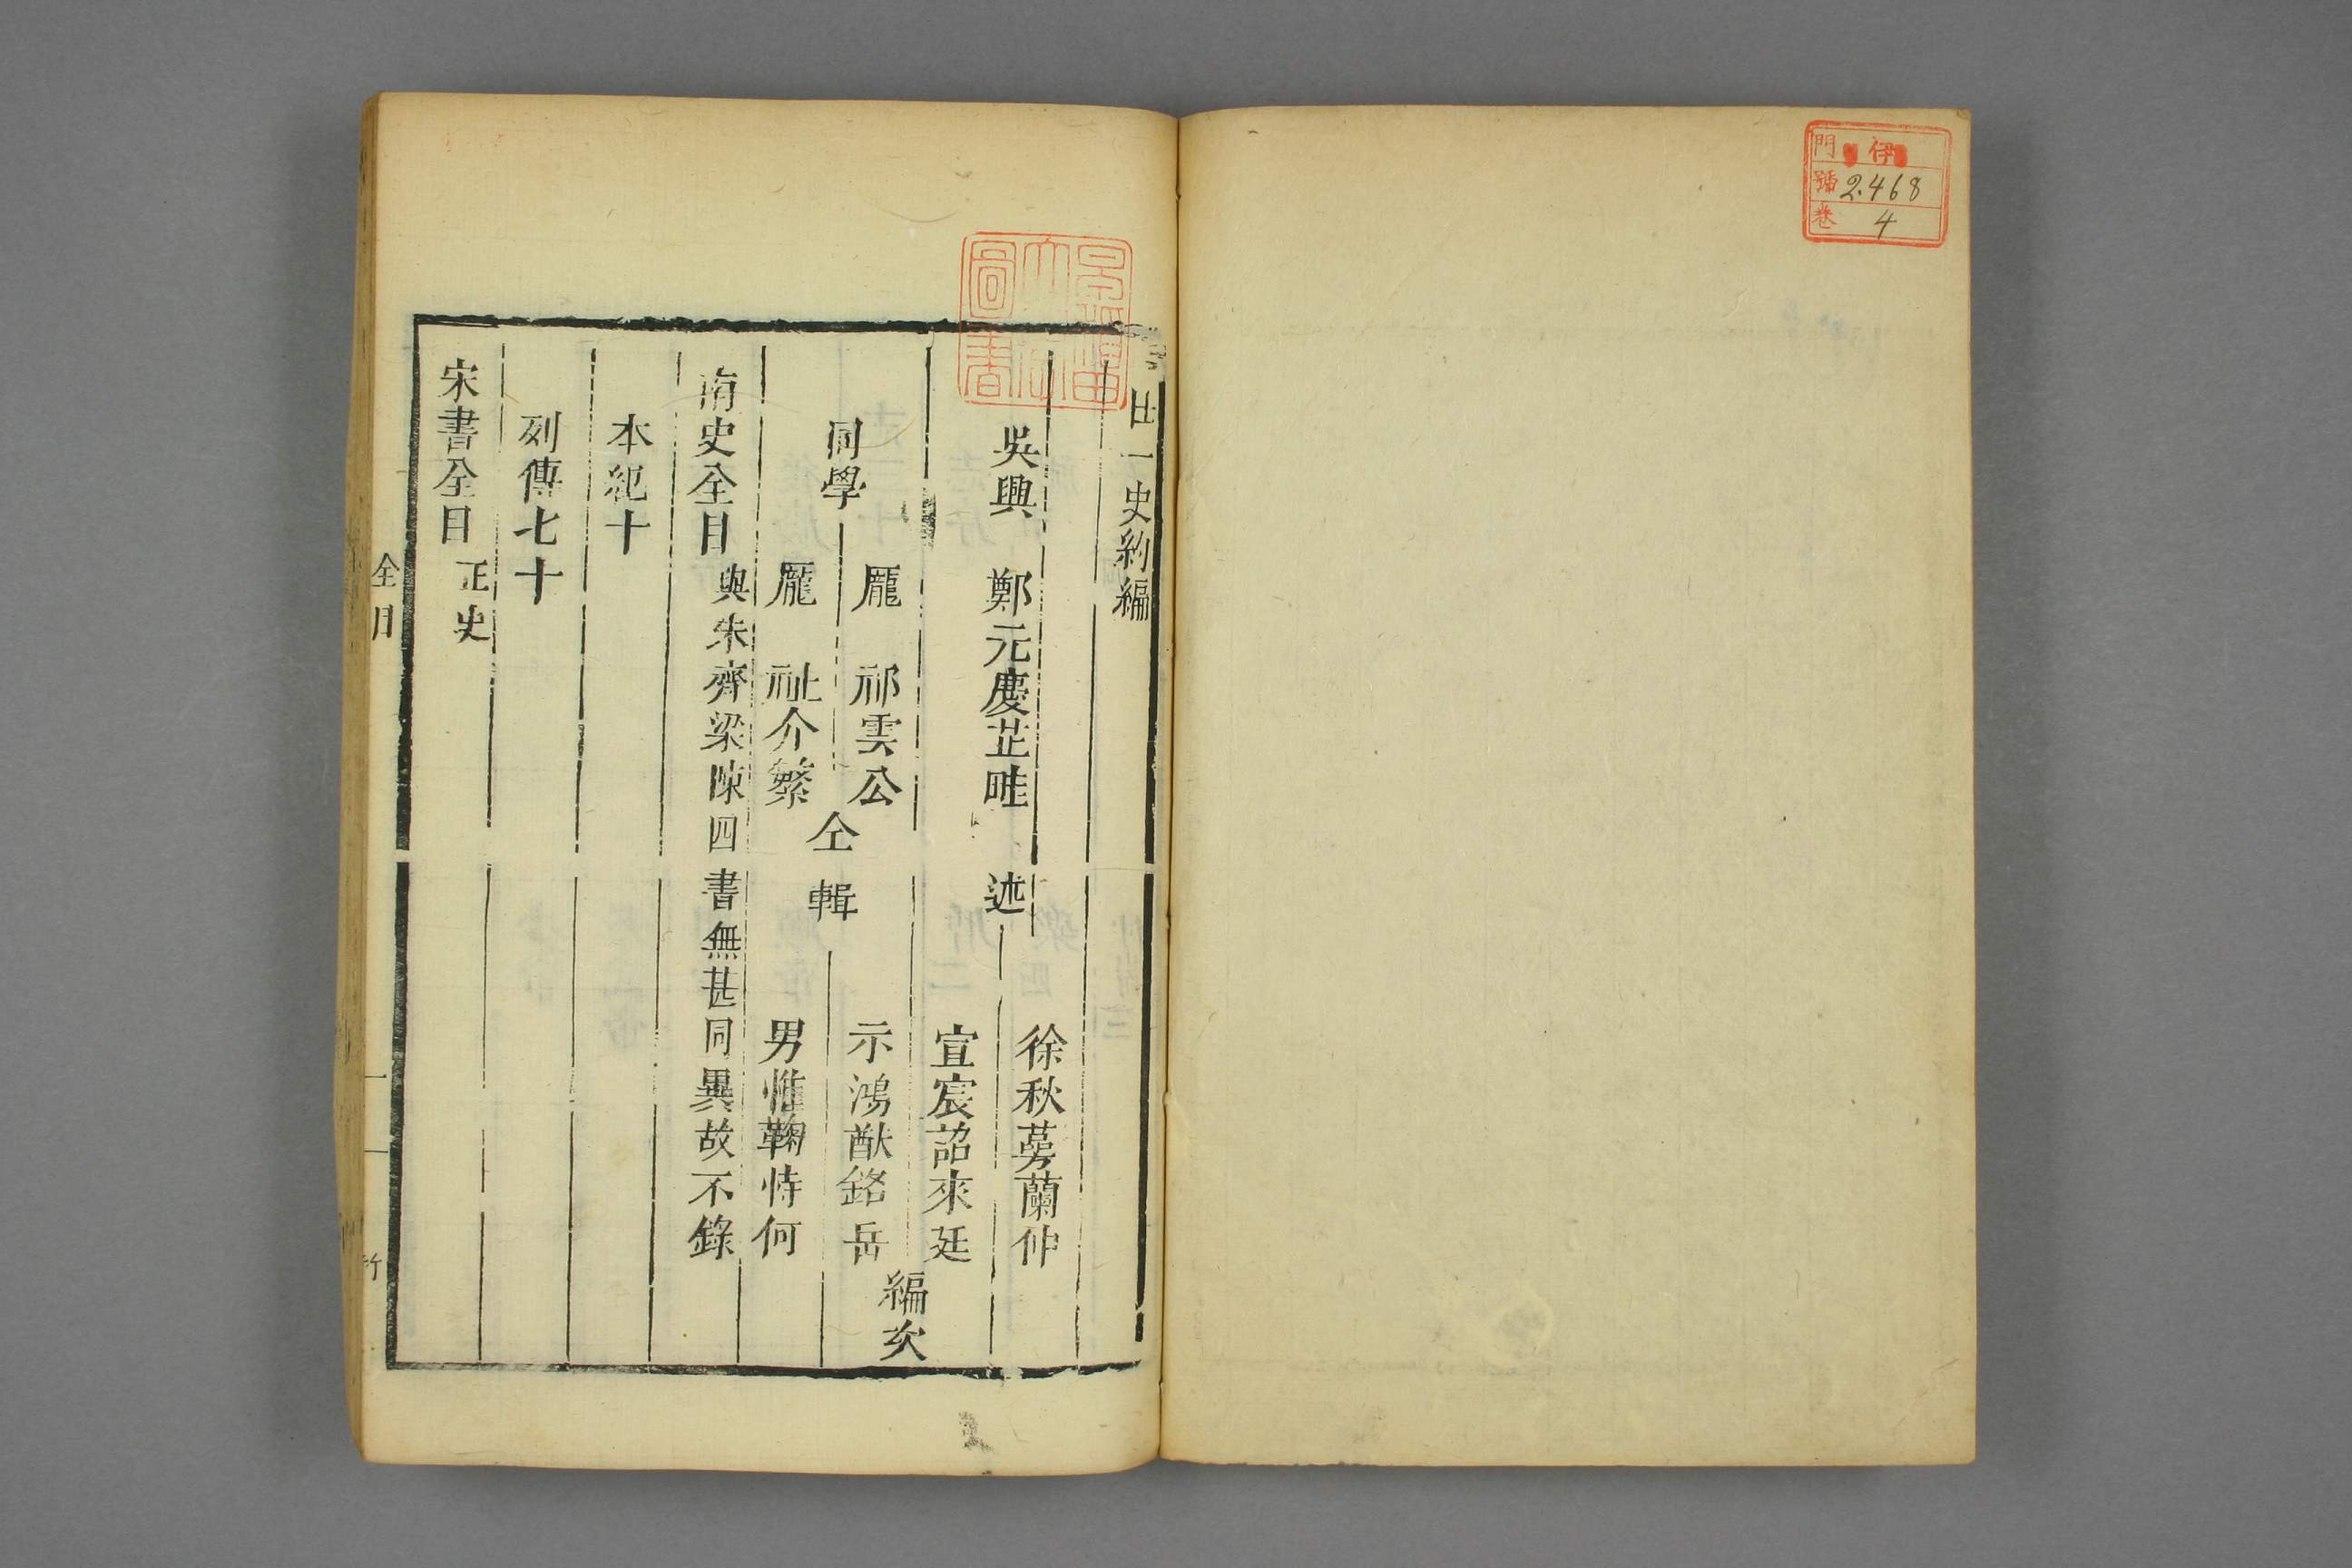 門 伊
號 2.468
卷 4
廿一史約編
吳興 鄭元慶芷畦 述
徐秋蕚蘭仲
宣宸詔來廷
同學
龎 祁雲公
龎 祉介繁
仝輯
示鴻猷銘岳
男惟鞠恃何
編次
南史全目 與宋齊梁陳四書無甚同異故不錄
本紀十
列傳七十
宋書全目 正史
全目
圖書